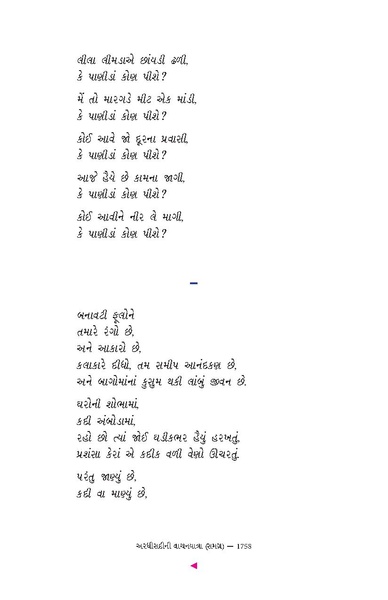 લીલા લીમડાએ છાંયડી ઢળી,
કે પાણીડાં કોણ પીશે?
મેં તો મારગડે મીટ એક માંડી,
કે પાણીડાં કોણ પીશે?
કોઈ આવે જો દૂરના પ્રવાસી,
કે પાણીડાં કોણ પીશે?
આજે હૈયે છે કામના જાગી,
કે પાણીડાં કોણ પીશે?
કોઈ આવીને નીર લે માગી,
કે પાણીડાં કોણ પીશે?
બનાવટી ફૂલોને
તમારે રંગો છે,
અને આકારો છે,
કલાકારે દીધો, તમ સમીપ આનંદકણ છે,
અને બાગોમાંનાં કુસુમ થકી લાંબું જીવન છે.
ઘરોની શોભામાં,
કદી અંબોડામાં,
રહો છો ત્યાં જોઈ ઘડીકભર હૈયું હરખતું,
પ્રશંસા કેરાં એ કદીક વળી વેણો ઊચરતું.
પરંતુ જાણ્યું છે,
કદી વા માણ્યું છે,
અરધીસદીની વાચનયાત્રા (સમગ્ર) — 1755